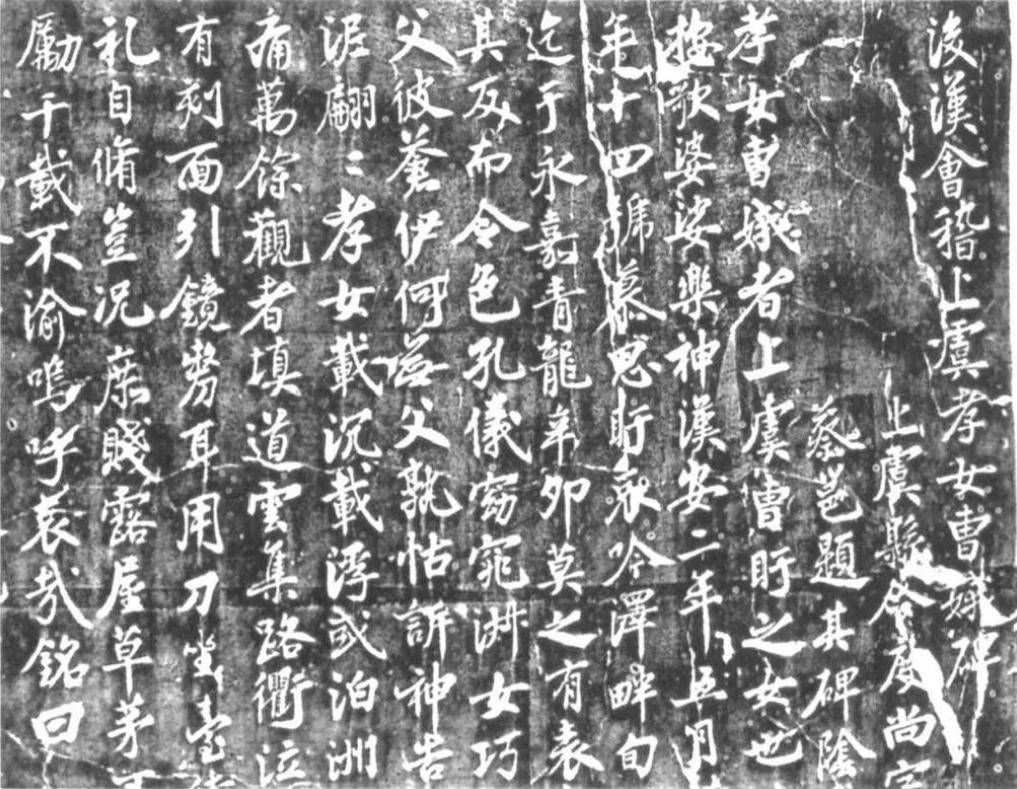 後漢會稽上虞孝女曹娥碑
上虞縣令度尚字
蔡邕題其碑陰
孝女曹娥者上虞曹盱之女也
按歌婆娑樂神漢安二年五月
年十四號慕思盱哀吟澤畔旬
迄于永嘉青龍辛卯莫之有表
其反而令色孔儀窈窕淑女巧
父彼蒼伊何無父孰怙訴神告
泥翩二孝女載沉載浮或泊洲
痛萬餘觀者填道雲集路衢泣
有剋面引鏡剺耳用刀坐臺
礼自脩豈况庶賤露屋草茅
勵千載不渝嗚呼哀哉銘曰